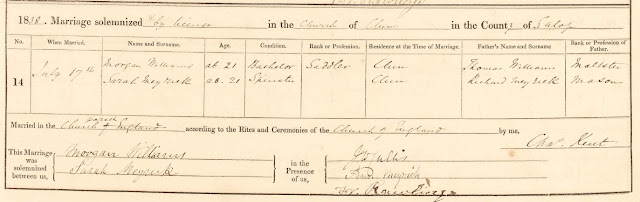 1838. Marriage solemnized by licence in the Church of Clun in the County of Salop
No. When Married. Name and Surname. Age. Condition. Rank or Profession. Residence at the Time of Marriage. Father's Name and Surname Rank or Profession of Father.
14 July 17th Morgan Williams ab. 21 Bachelor Saddler Clun Thomas Williams Maltster
Sarah Meyrick ab. 21 Spinster Clun Richard Meyrick Mason
Married in the Parish Church of England according to the Rites and Ceremonies of the Church of England by me,
Chas. Kent
This Marriage was solemnized between us,
Morgan Williams
Sarah Meyrick
in the Presence of us,